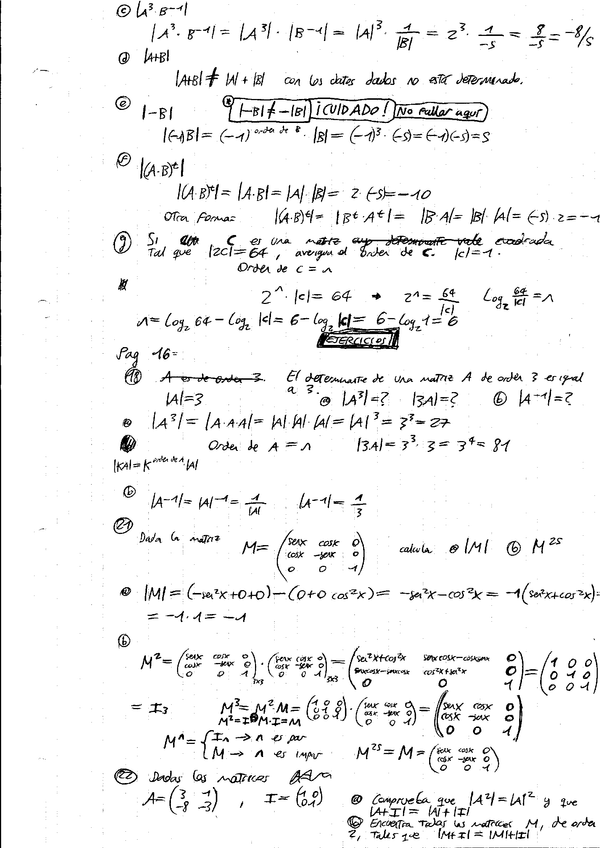 c) |A³·B⁻¹|
|A³·B⁻¹| = |A³|·|B⁻¹| = |A|³ · 1/|B| = 2³ · 1/-5 = 8/-5 = -8/5
d) |A+B|
|A+B| ≠ |A| + |B| con los datos dados no está determinado.
e) |-B| |-B| ≠ -|B| ¡CUIDADO! No fallar aquí
|(-1)B| = (-1)^orden de B · |B| = (-1)³ · (-5) = (-1)(-5) = 5
f) |(A·B)ᵗ|
|(A·B)ᵗ| = |A·B| = |A|·|B| = 2·(-5) = -10
Otra forma: |(A·B)ᵗ| = |Bᵗ·Aᵗ| = |B·A| = |B|·|A| = (-5)·2 = -1
g) Si C es una matriz cuadrada
tal que |2C| = 64, averigua el orden de C. |C| = 1.
Orden de C = n
2ⁿ·|C| = 64 → 2ⁿ = 64/|C| Log₂ 64/|C| = n
n = Log₂ 64 - Log₂ |C| = 6 - Log₂ |C| = 6 - Log₂ 1 = 6
EJERCICIOS
Pag 16:
18) A es de orden 3. El determinante de una matriz A de orden 3 es igual
a 3.
|A| = 3 a) |A³| = ? |3A| = ? b) |A⁻¹| = ?
a) |A³| = |A·A·A| = |A|·|A|·|A| = |A|³ = 3³ = 27
Orden de A = n |3A| = 3³·3 = 3⁴ = 81
|KA| = K^orden de A·|A|
b) |A⁻¹| = |A|⁻¹ = 1/|A| |A⁻¹| = 1/3
21) Dada la matriz M = (senx cosx 0
cosx -senx 0
0 0 1) calcula a) |M| b) M²⁵
a) |M| = (-sen²x+0+0) - (0+0 cos²x) = -sen²x - cos²x = -1(sen²x+cos²x) =
= -1·1 = -1
b)
M² = (senx cosx 0
cosx -senx 0
0 0 1)3x3 · (senx cosx 0
cosx -senx 0
0 0 1)3x3 = (sen²x+cos²x senxcosx-cosxsenx 0
senxcosx-senxcosx cos²x+sen²x 0
0 0 1) = (1 0 0
0 1 0
0 0 1)
= I₃ M³ = M²·M = (1 0 0
0 1 0
0 0 1) · (senx cosx 0
cosx -senx 0
0 0 1) = (senx cosx 0
cosx -senx 0
0 0 1)
M²=I M·I=M
Mⁿ = {Iₙ → n es par
M → n es impar M²⁵ = M = (senx cosx 0
cosx -senx 0
0 0 1)
22) Dadas las matrices
A = (3 1
-8 -3), I = (1 0
0 1) a) Comprueba que |A²| = |A|² y que
|A+I| = |A|+|I|
b) Encuentra todas las matrices M, de orden
2, tales que |M+I| = |M|+|I|